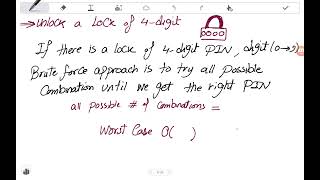 → Unlock a Lock of 4-digit
If there is a lock of 4-digit PIN, digit (0→9)
Brute force approach is to try all possible
Combination until we get the right PIN
all possible # of combinations =
Worst Case O( )